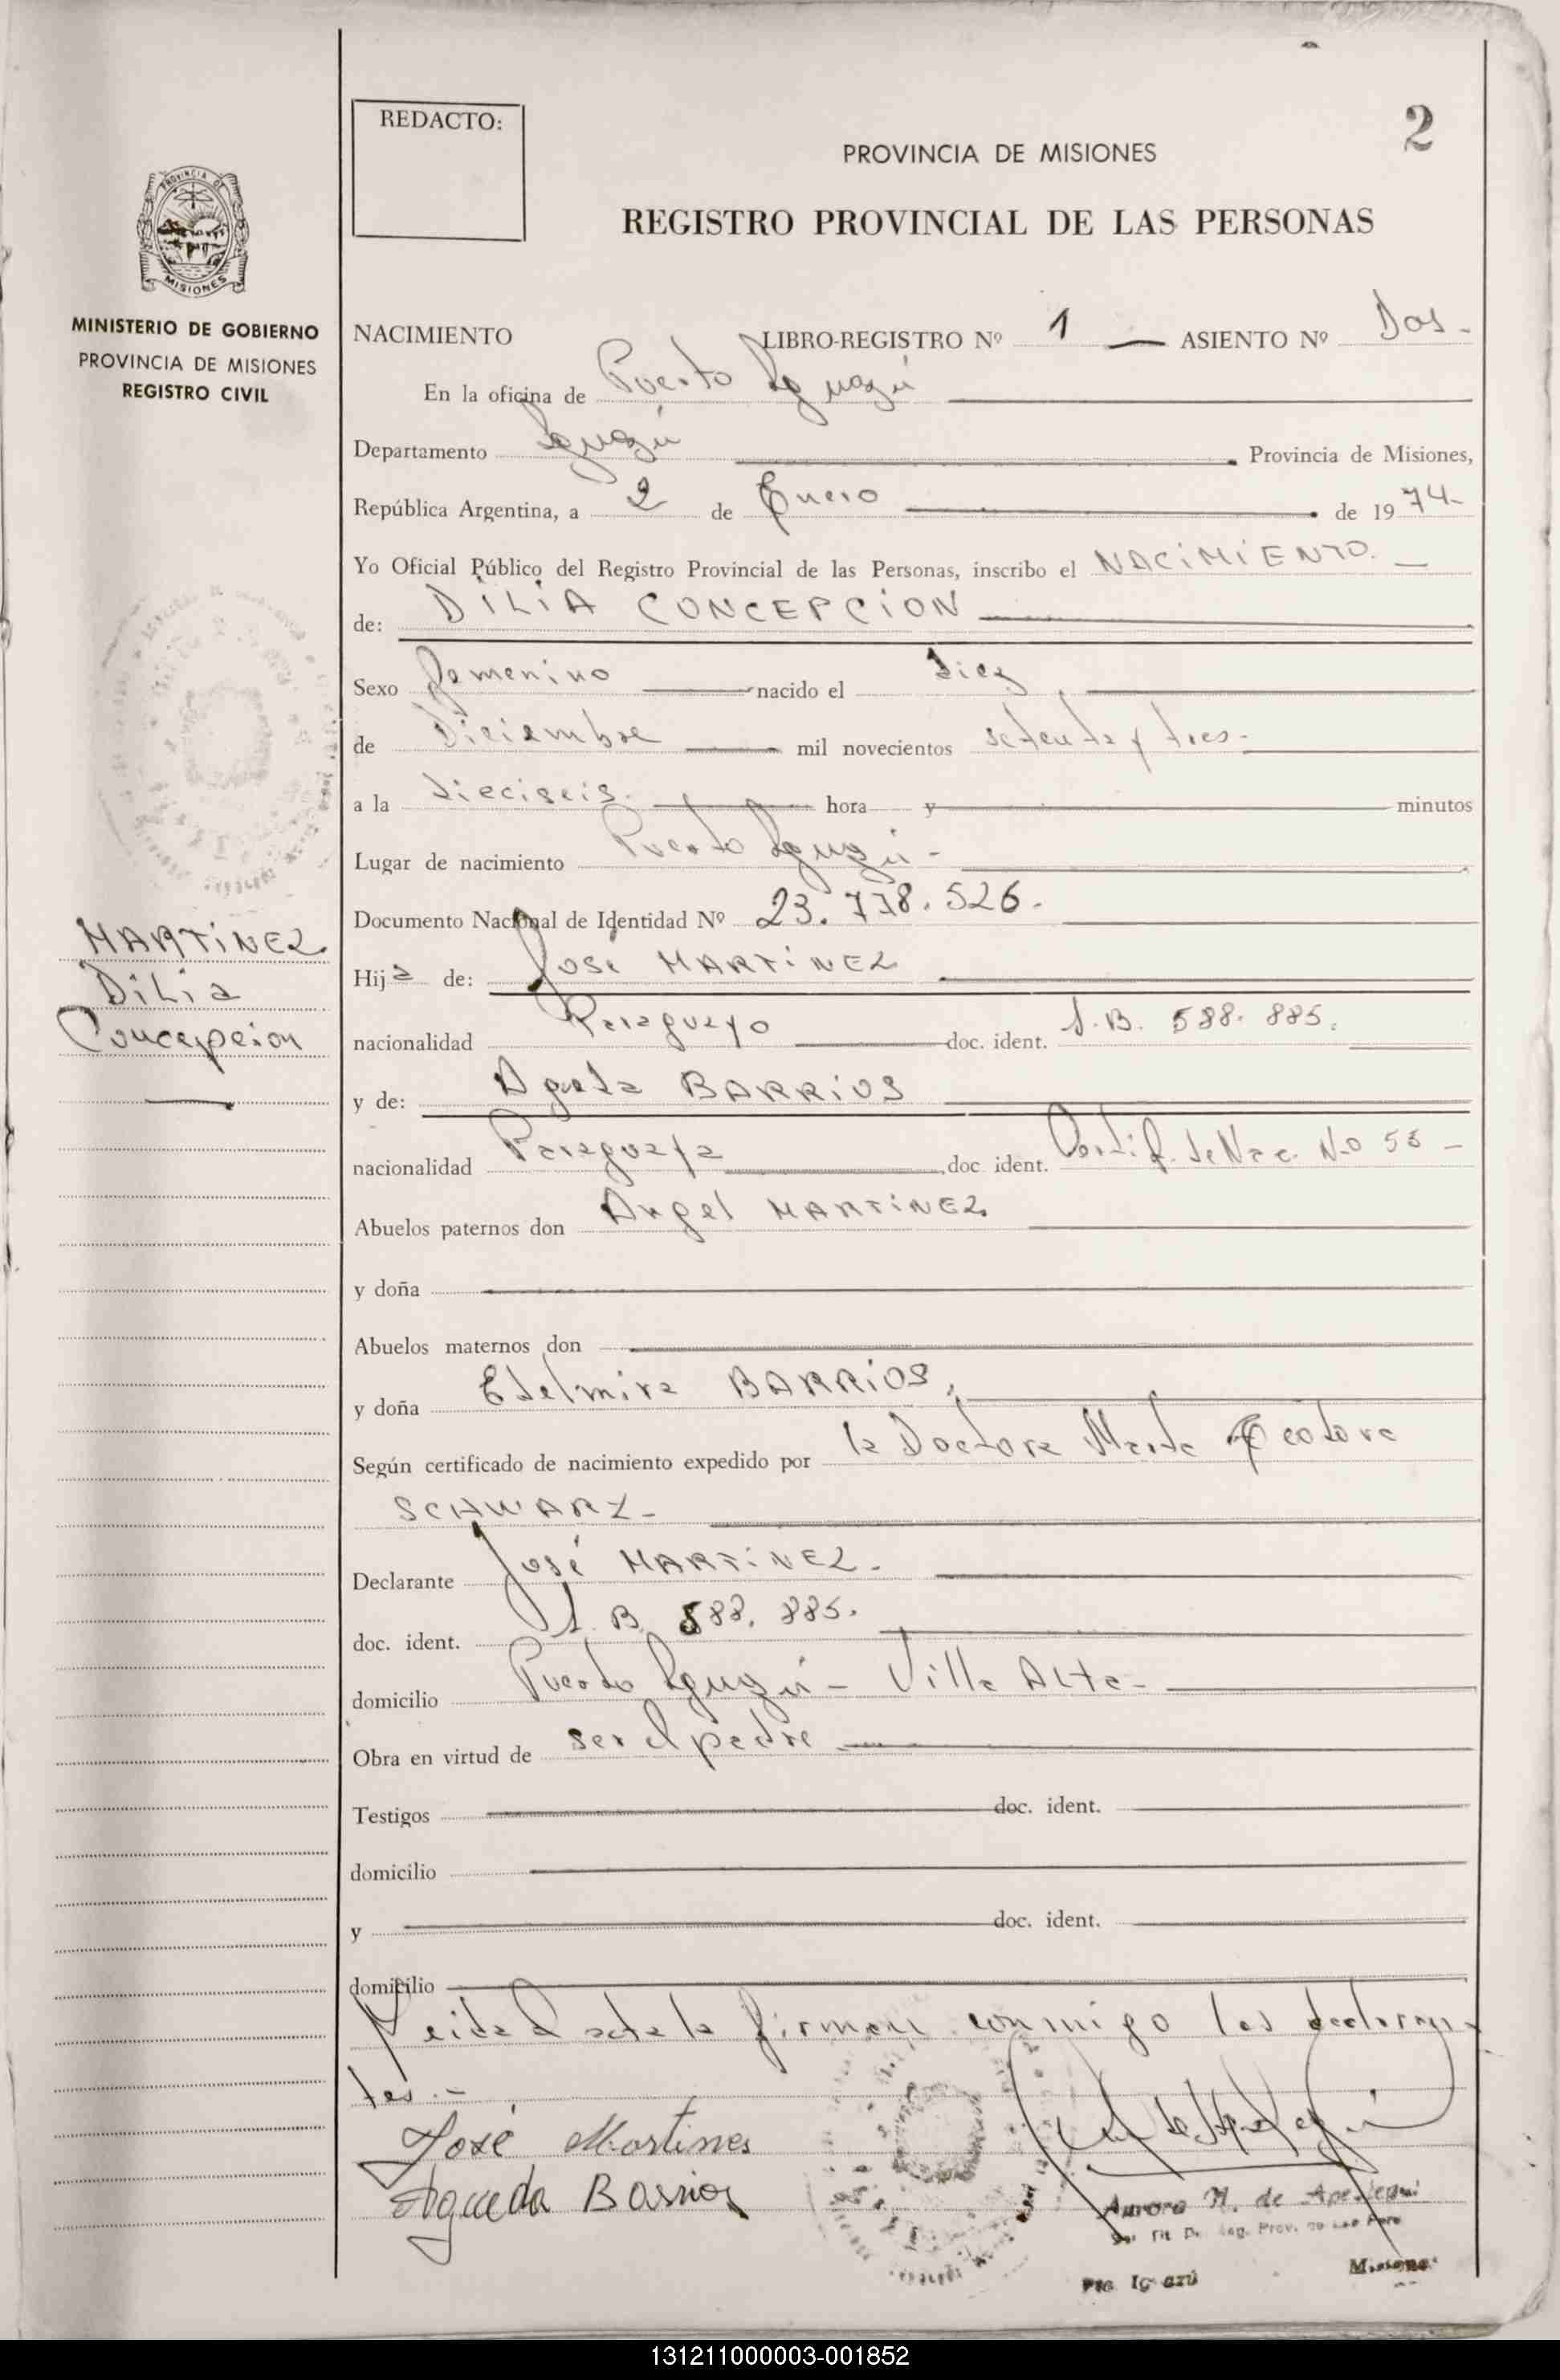 REDACTO:
2
PROVINCIA DE MISIONES
REGISTRO PROVINCIAL DE LAS PERSONAS
PROVINCIA DE
MISIONES
MINISTERIO DE GOBIERNO
PROVINCIA DE MISIONES
REGISTRO CIVIL
MARTINEZ
Dilia
Concepcion
NACIMIENTO LIBRO-REGISTRO Nº 1 — ASIENTO Nº Dos.-
En la oficina de Puerto Iguazú
Departamento Iguazú Provincia de Misiones,
República Argentina, a 2 de Enero de 1974-
Yo Oficial Público del Registro Provincial de las Personas, inscribo el NACIMIENTO.
de: DILIA CONCEPCION
Sexo femenino nacido el diez
de Diciembre mil novecientos setenta y tres.-
a la dieciseis. hora y minutos
Lugar de nacimiento Puerto Iguazú -
Documento Nacional de Identidad Nº 23.738.526.
Hija de: José MARTINEZ
nacionalidad Paraguayo doc. ident. S.B. 588.885.
y de: Agueda BARRIOS
nacionalidad Paraguaya doc ident. Certif. de Nac. Nº 55 -
Abuelos paternos don Angel MARTINEZ
y doña
Abuelos maternos don
y doña Edelmira BARRIOS.
Según certificado de nacimiento expedido por la Doctora Marta Teodora
SCHWARZ -
Declarante José MARTINEZ.
doc. ident. S.B. 588.885.
domicilio Puerto Iguazú - Villa Alta -
Obra en virtud de ser el padre
Testigos doc. ident.
domicilio
y doc. ident.
domicilio
Leida el acta la firman conmigo los declaran-
tes.-
José Martines
Agueda Barrios
Aurora M. de
Reg. Prov. de Las Pers
Pto. Iguazú Misiones
131211000003-001852